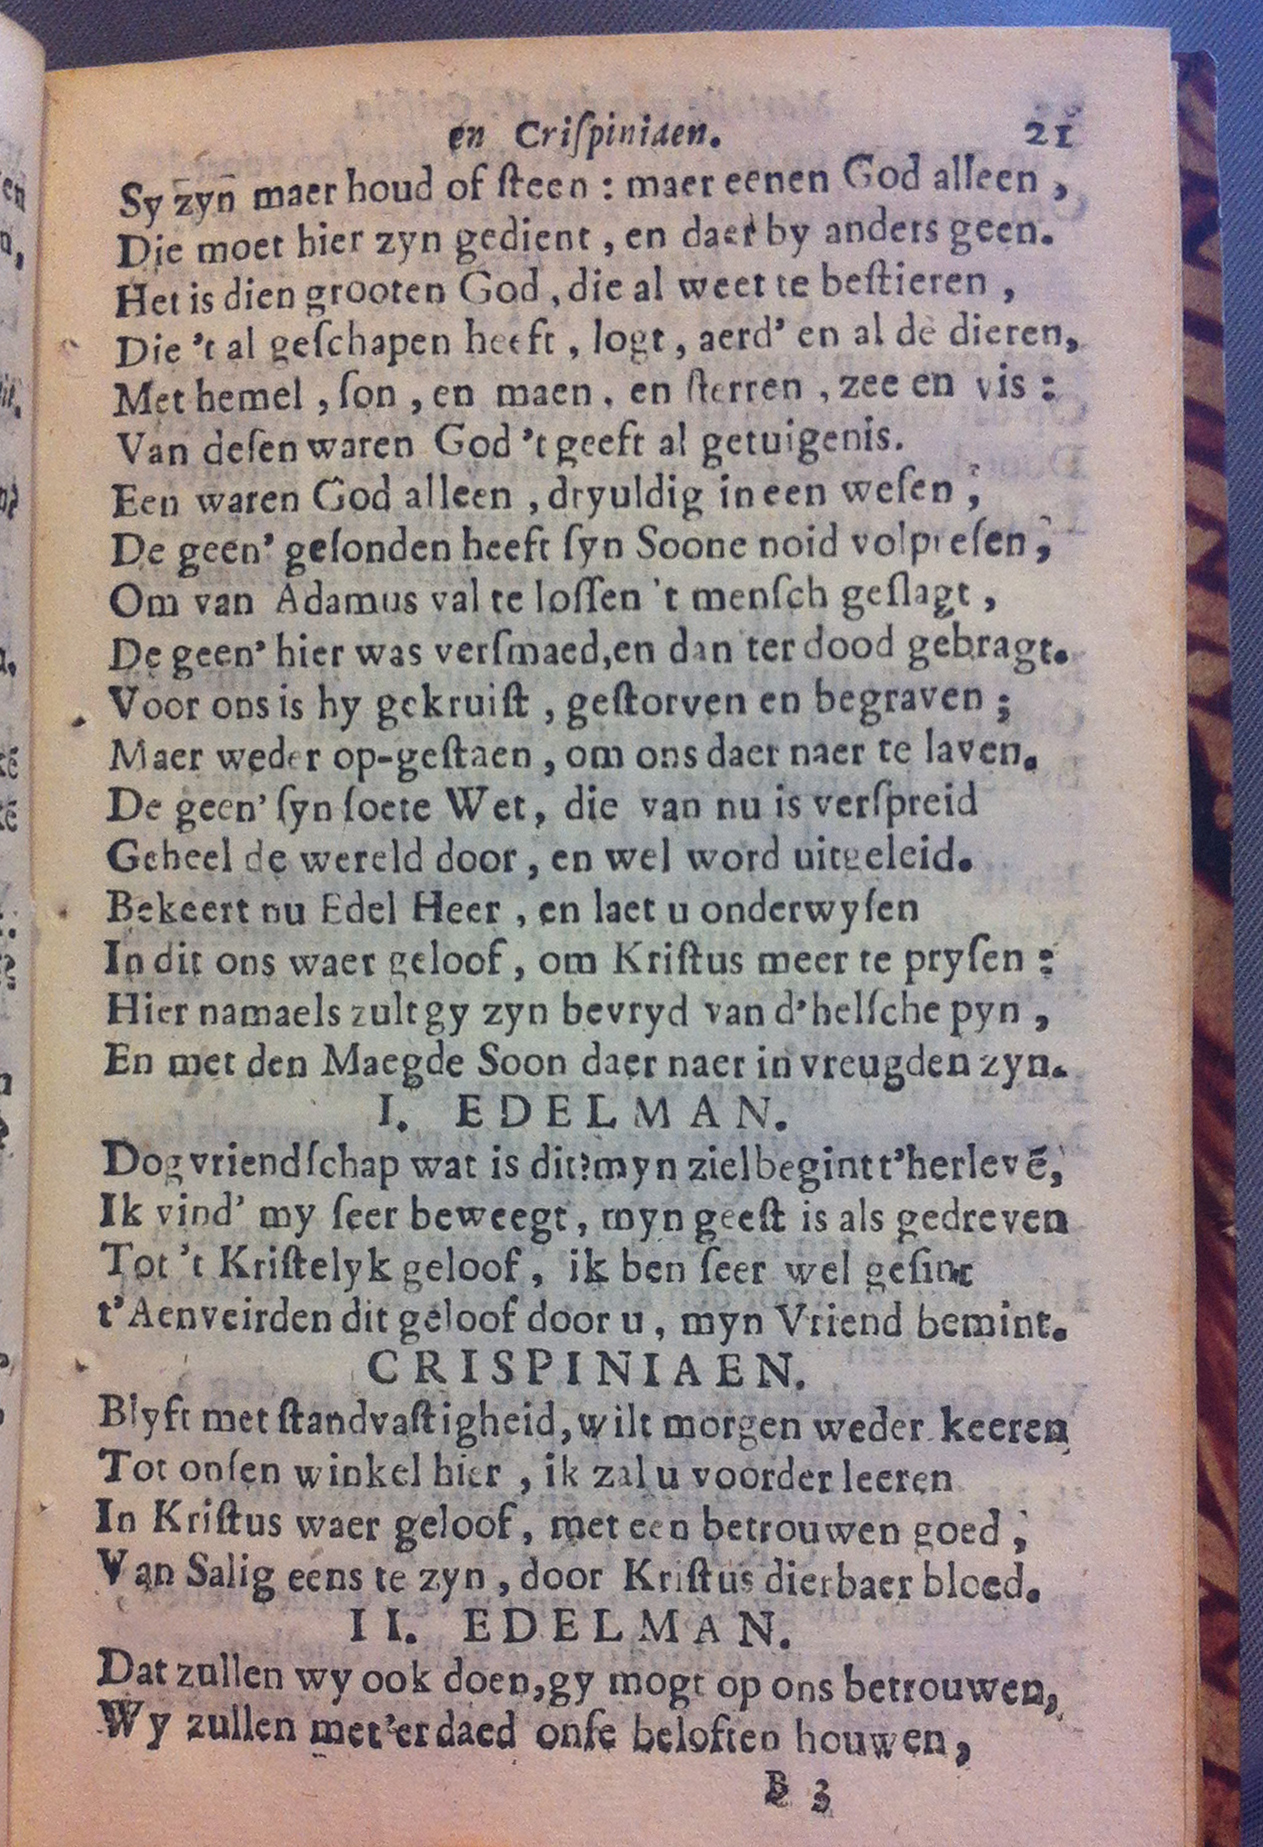 en Criſpiniaen. 21
Sy zyn maer houd of ſteen : maer eenen God alleen ,
Die moet hier zyn gedient , en daer by anders geen.
Het is dien grooten God , die al weet te beſtieren ,
Die 't al geſchapen heeft , logt , aerd' en al de dieren,
Met hemel , ſon , en maen , en ſterren , zee en vis :
Van deſen waren God 't geeft al getuigenis.
Een waren God alleen , dryuldig in een weſen ,
De geen' geſonden heeft ſyn Soone noid volpreſen ,
Om van Adamus val te loſſen 't menſch geſlagt ,
De geen' hier was verſmaed,en dan ter dood gebragt.
Voor ons is hy gekruiſt , geſtorven en begraven ;
Maer weder op-geſtaen , om ons daer naer te laven.
De geen' ſyn ſoete Wet, die van nu is verſpreid
Geheel de wereld door , en wel word uitgeleid.
Bekeert nu Edel Heer , en laet u onderwyſen
In dit ons waer geloof , om Kriſtus meer te pryſen :
Hier namaels zult gy zyn bevryd van d'helſche pyn ,
En met den Maegde Soon daer naer in vreugden zyn.
I. EDELMAN.
Dog vriendſchap wat is dit?myn ziel begint t'herlevē,
Ik vind' my ſeer beweegt , myn geeſt is als gedreven
Tot 't Kriſtelyk geloof , ik ben ſeer wel geſint
t'Aenveirden dit geloof door u , myn Vriend bemint.
CRISPINIAEN.
Blyft met ſtandvaſtigheid, wilt morgen weder keeren
Tot onſen winkel hier , ik zal u voorder leeren
In Kriſtus waer geloof , met een betrouwen goed ,
Van Salig eens te zyn , door Kriſtus dierbaer bloed.
II. EDELMAN.
Dat zullen wy ook doen,gy mogt op ons betrouwen,
Wy zullen met'er daed onſe beloften houwen,
B 3